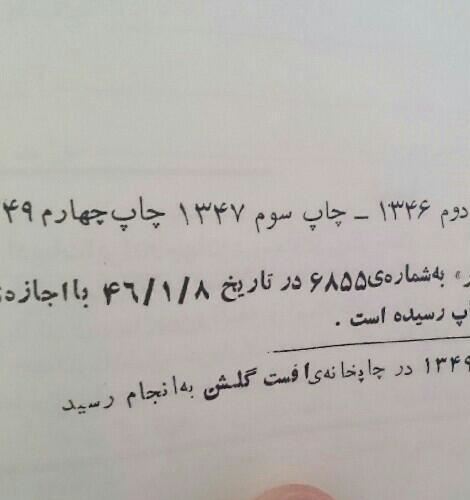 دوم ۱۳۴۶ ـ چاپ سوم ۱۳۴۷ چاپ چهارم ۴۹
» به‌شماره‌ی ۶۸۵۵ در تاریخ ۴۶/۱/۸ با اجازه‌
رسیده است .
۱۳۴۹ در چاپخانه‌ی افست گلشن به‌انجام رسید